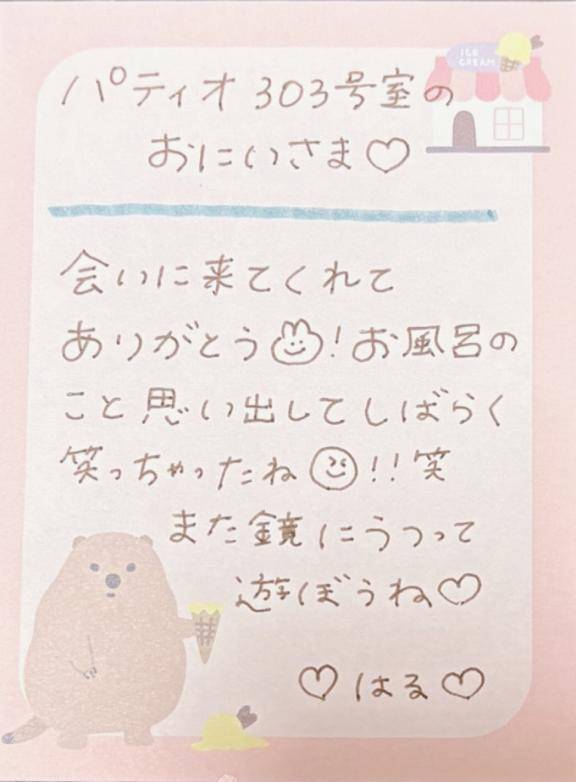 ICE
CREAM
パティオ 303号室の
おにいさま♡
会いに来てくれて
ありがとう!お風呂の
こと思い出してしばらく
笑っちゃったね!!笑
また鏡にうつって
遊ぼうね♡
♡はる♡